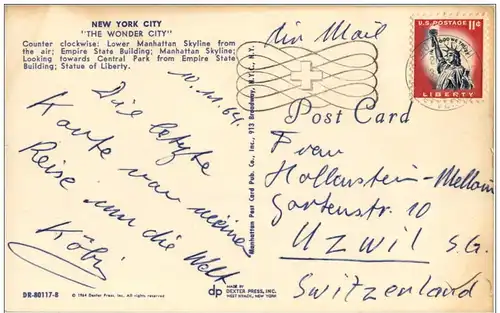 NEW YORK CITY
"THE WONDER CITY"
Counter clockwise: Lower Manhattan Skyline from
the air; Empire State Building; Manhattan Skyline;
Looking towards Central Park from Empire State
Building; Statue of Liberty.
10.11.64.
Die letzte
Karte von meiner
Reise um die Welt
Köbi
DR-80117-B
© 1964 Dexter Press, Inc. All rights reserved
Manhattan Post Card Pub. Co., Inc., 913 Broadway, N.Y.C., N.Y.
dp
MADE BY
DEXTER PRESS, INC.
WEST NYACK, NEW YORK
Air Mail
U.S. POSTAGE 11¢
IN GOD WE TRUST
LIBERTY
Post Card
Frau
Hollenstein-Mellow
Gartenstr. 10
UZWIL S.G.
Switzerland